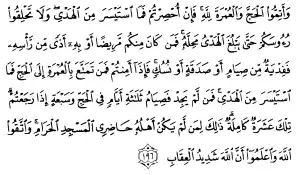 وَأَتِمُّوا۟ ٱلْحَجَّ وَٱلْعُمْرَةَ لِلَّهِ ۚ فَإِنْ أُحْصِرْتُمْ فَمَا ٱسْتَيْسَرَ مِنَ ٱلْهَدْىِ ۖ وَلَا تَحْلِقُوا۟
رُءُوسَكُمْ حَتَّىٰ يَبْلُغَ ٱلْهَدْىُ مَحِلَّهُۥ ۚ فَمَن كَانَ مِنكُم مَّرِيضًا أَوْ بِهِۦٓ أَذًى مِّن رَّأْسِهِۦ
فَفِدْيَةٌ مِّن صِيَامٍ أَوْ صَدَقَةٍ أَوْ نُسُكٍ ۚ فَإِذَآ أَمِنتُمْ فَمَن تَمَتَّعَ بِٱلْعُمْرَةِ إِلَى ٱلْحَجِّ فَمَا
ٱسْتَيْسَرَ مِنَ ٱلْهَدْىِ ۚ فَمَن لَّمْ يَجِدْ فَصِيَامُ ثَلَٰثَةِ أَيَّامٍ فِى ٱلْحَجِّ وَسَبْعَةٍ إِذَا رَجَعْتُمْ ۗ
تِلْكَ عَشَرَةٌ كَامِلَةٌ ۗ ذَٰلِكَ لِمَن لَّمْ يَكُنْ أَهْلُهُۥ حَاضِرِى ٱلْمَسْجِدِ ٱلْحَرَامِ ۚ وَٱتَّقُوا۟
ٱللَّهَ وَٱعْلَمُوٓا۟ أَنَّ ٱللَّهَ شَدِيدُ ٱلْعِقَابِ ١٩٦